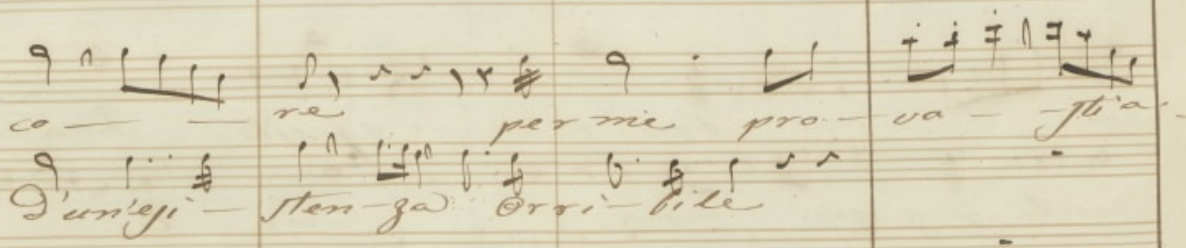 co — — re per me pro - va - sti a -
D'un'esi - sten - za orri - bile